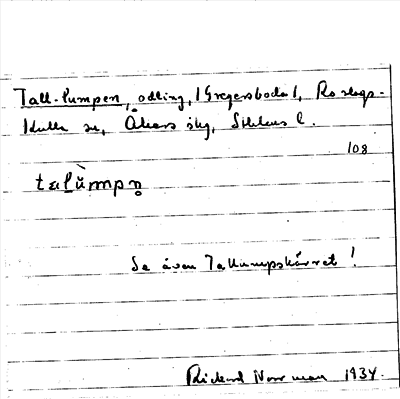 Tall-lumpen, odling, (Gregersboda), Roslags-
Kulla sn, Åkers skg, Sthlms l.
108
talùmpn̥
Se även Tallumpskärret!
Rickard Norrman 1934.